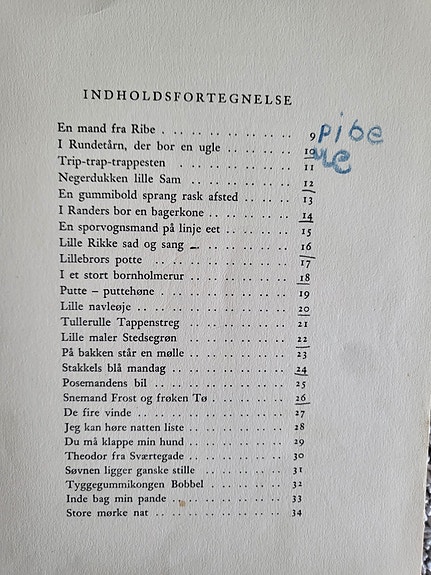 INDHOLDSFORTEGNELSE
En mand fra Ribe . . . . . . . . . . 9 pibe
I Rundetårn, der bor en ugle . . . . . . 10 ue
Trip-trap-trappesten . . . . . . . . 11
Negerdukken lille Sam . . . . . . . . 12
En gummibold sprang rask afsted . . . . . 13
I Randers bor en bagerkone . . . . . . 14
En sporvognsmand på linje eet . . . . . 15
Lille Rikke sad og sang . . . . . . . 16
Lillebrors potte . . . . . . . . . . 17
I et stort bornholmerur . . . . . . . 18
Putte – puttehøne . . . . . . . . . 19
Lille navleøje . . . . . . . . . . 20
Tullerulle Tappenstreg . . . . . . . . 21
Lille maler Stedsegrøn . . . . . . . . 22
På bakken står en mølle . . . . . . . 23
Stakkels blå mandag . . . . . . . . 24
Posemandens bil . . . . . . . . . . 25
Snemand Frost og frøken Tø . . . . . . 26
De fire vinde . . . . . . . . . . . 27
Jeg kan høre natten liste . . . . . . . 28
Du må klappe min hund . . . . . . . 29
Theodor fra Sværtegade . . . . . . . . 30
Søvnen ligger ganske stille . . . . . . 31
Tyggegummikongen Bobbel . . . . . . 32
Inde bag min pande . . . . . . . . . 33
Store mørke nat . . . . . . . . . . 34